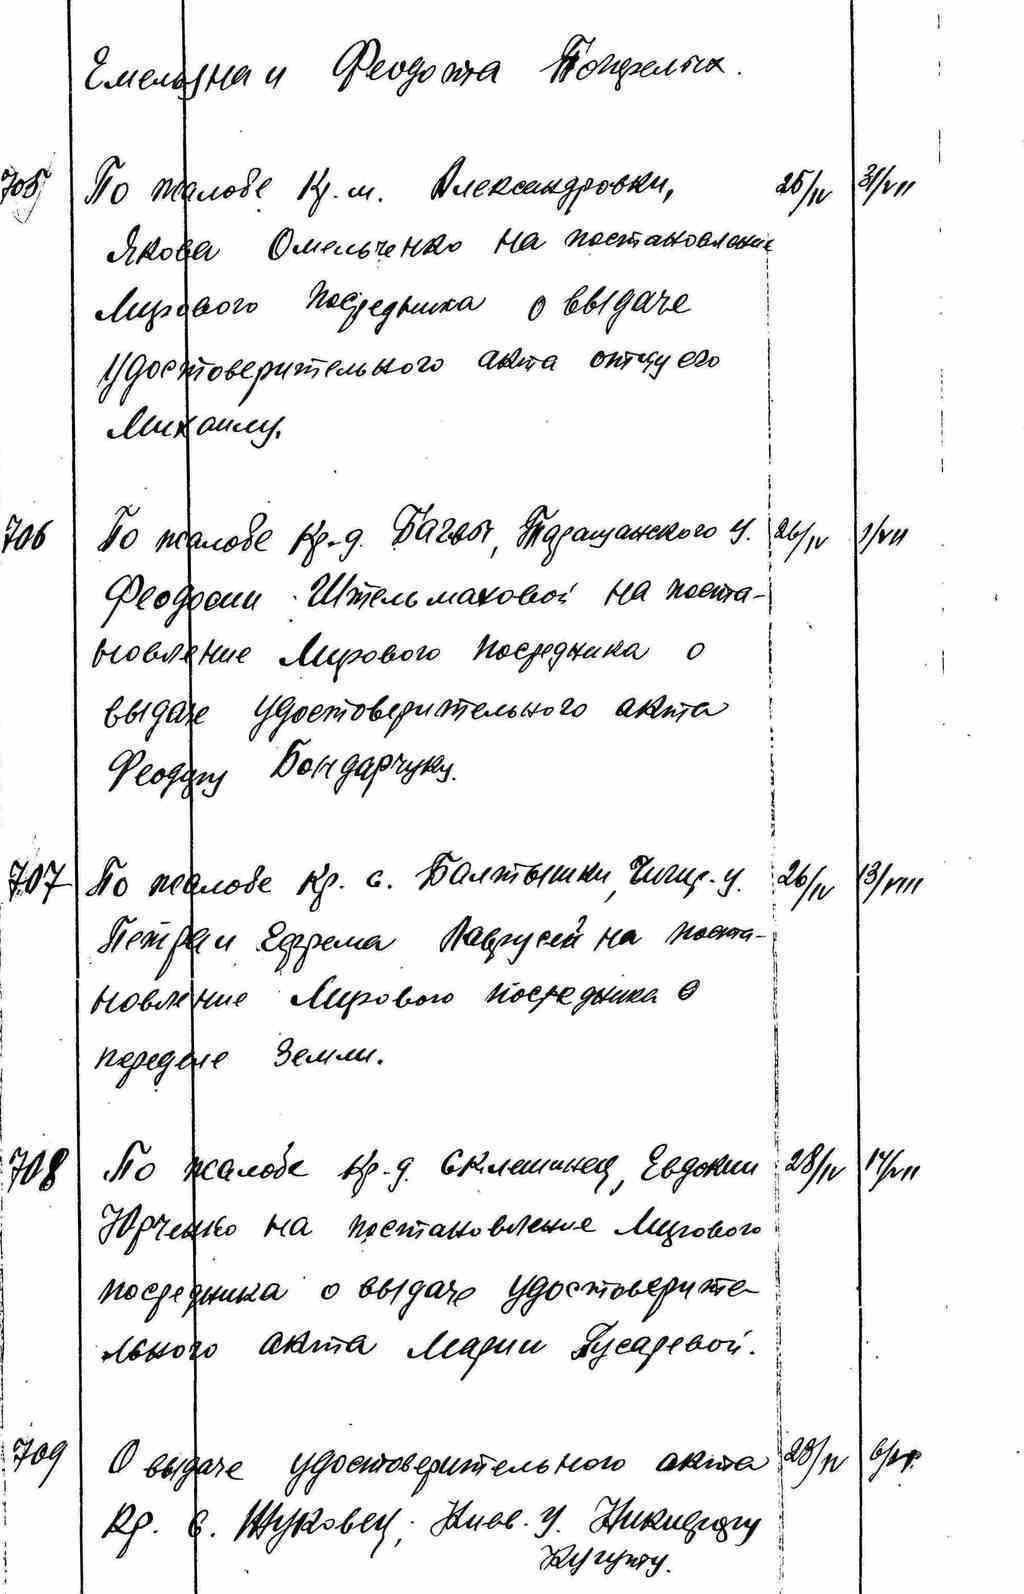 Емельяна и Феодота
705 По жалобе Кр. м. Александровки, 25/IV 31/VII
Якова Омельченко на постановление
Мирового Посредника о выдаче
удостоверительного акта отцу его
Михаилу.
706 По жалобе Кр-д. Багвы, Таращанского у. 26/IV 1/VII
Феодосии Штельмаховой на поста-
новление Мирового Посредника о
выдаче удостоверительного акта
Феодору Бондарчуку.
707 По жалобе Кр. с. Балтышки, Чигир. у. 26/IV 13/VIII
Петра и Ефрема на поста-
новление Мирового посредника о
переделе Земли.
708 По жалобе Кр-д. Склешинец, Евдокии 28/IV 14/VII
Юрченко на постановление Мирового
посредника о выдаче удостоверите-
льного акта Марии Гусаревой.
709 О выдаче удостоверительного акта 29/IV
Кр. с. Жуковец, Киев. у. Никифору